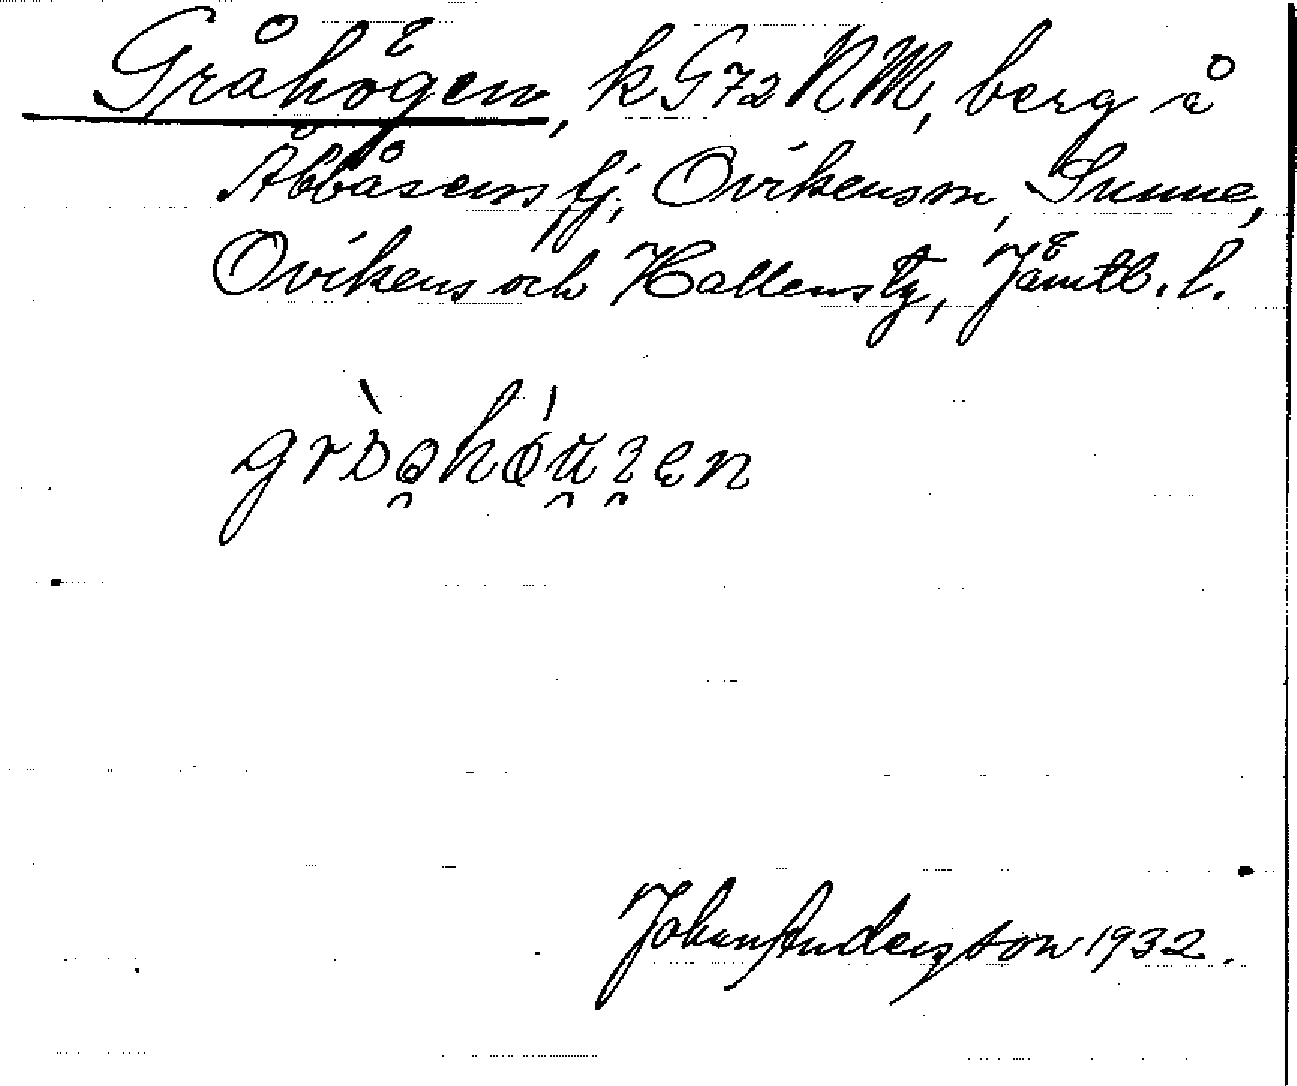 Gråhögen, k G72 NM, berg å
Åbbåsens fj, Ovikens sn, Sunne,
Ovikens och Hallens tg, Jämtl. l.
grɔ̀o̯hóu̯ɜ̯en
Johan Anderzson 1932.